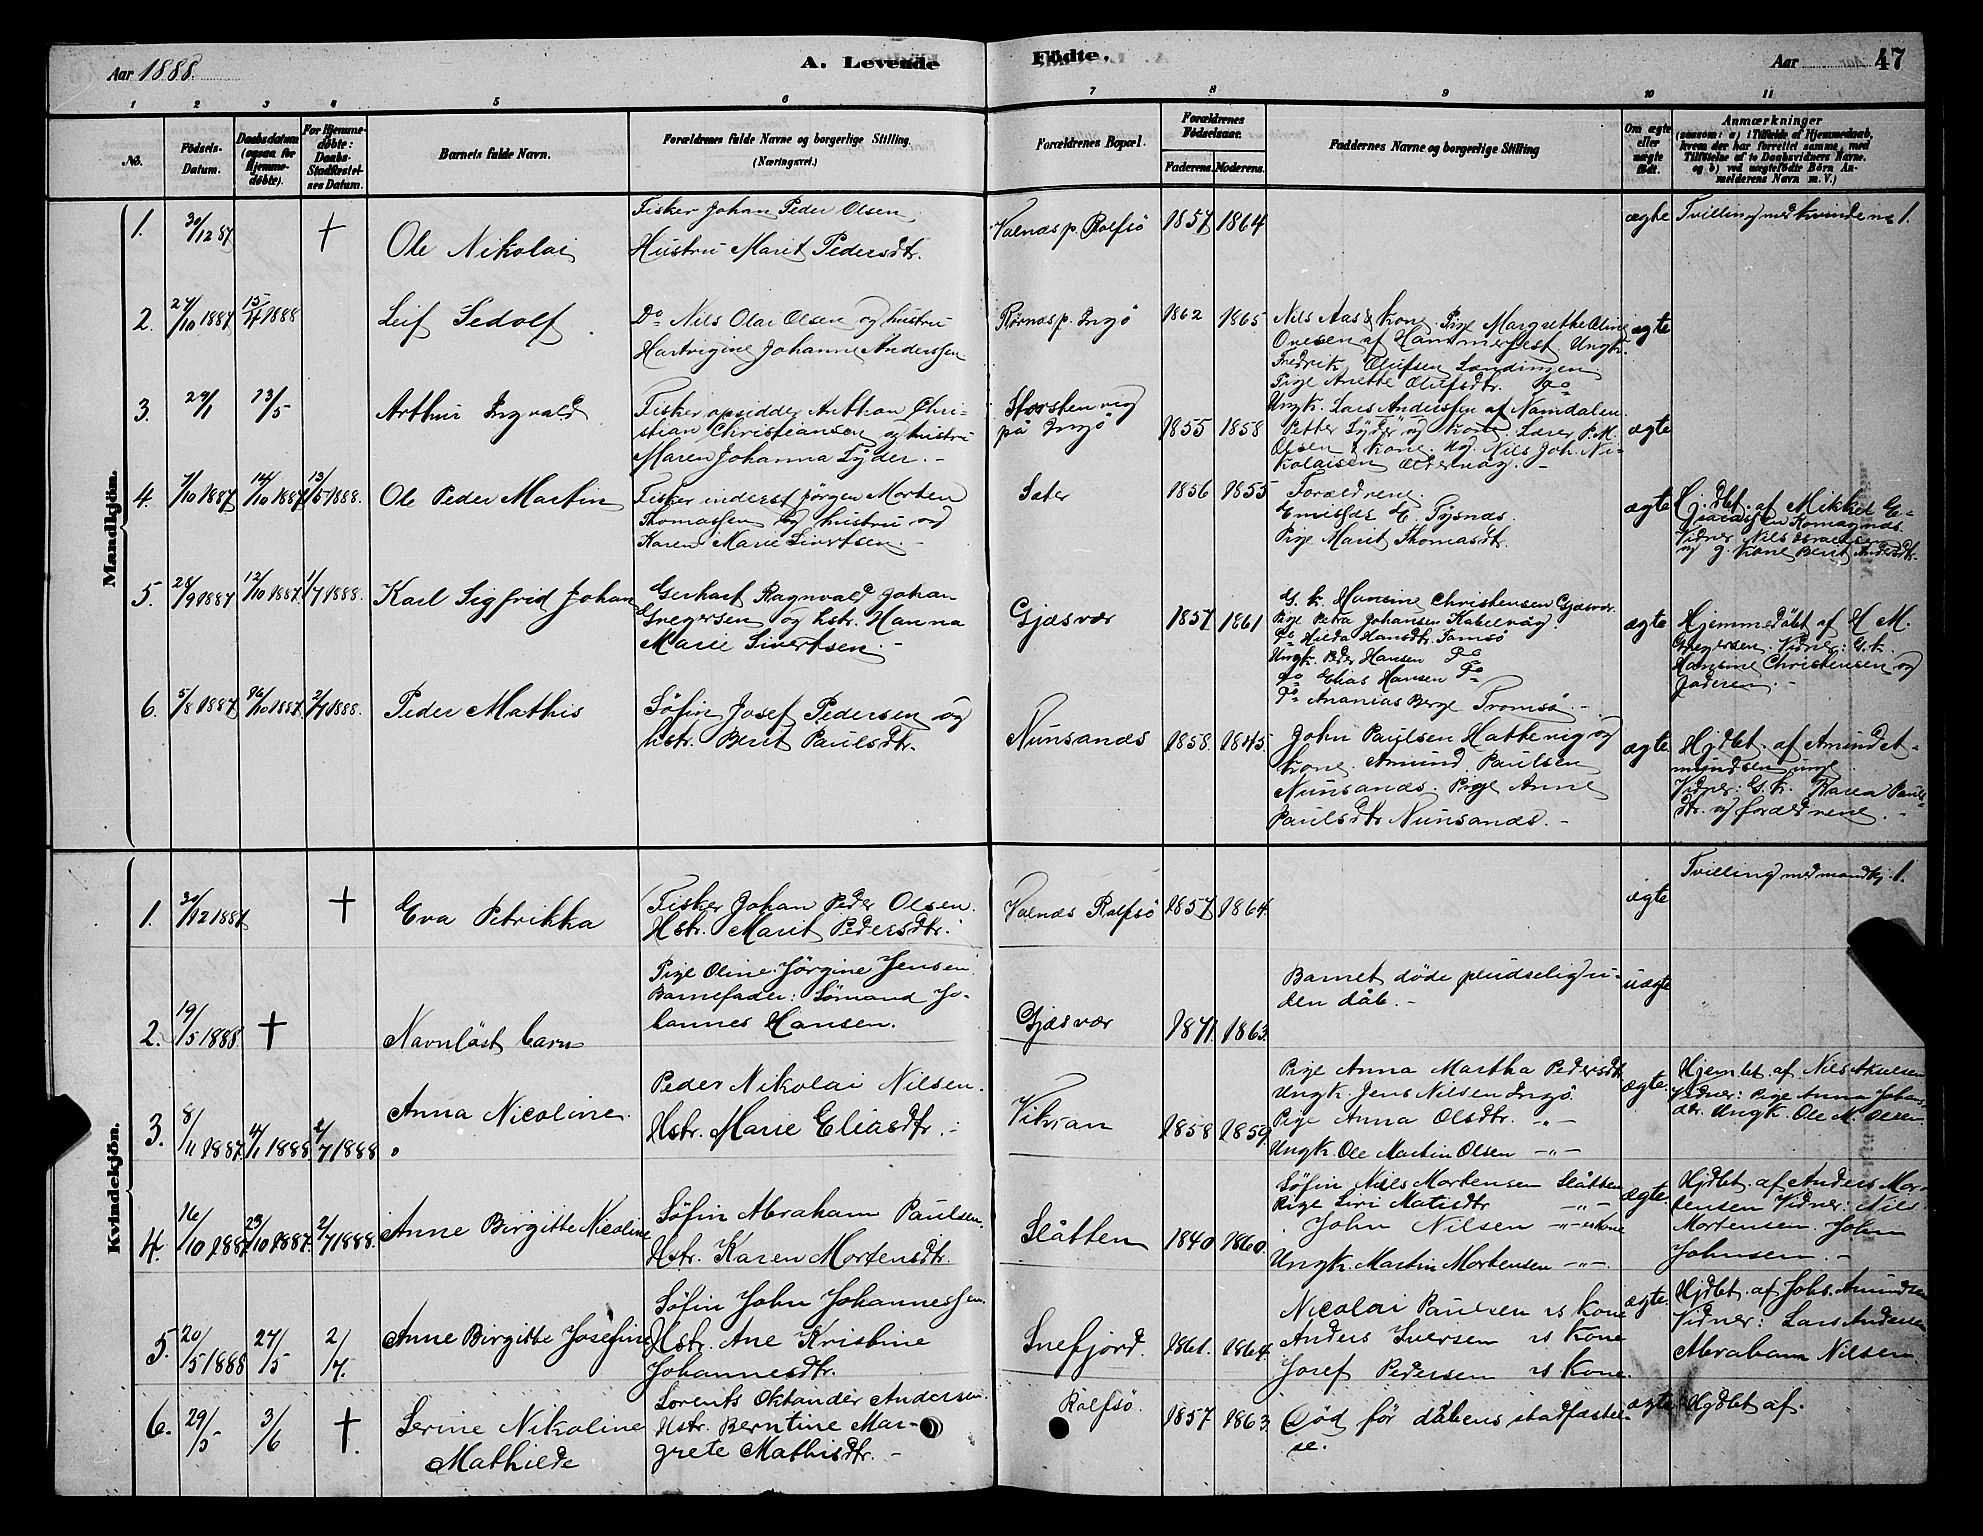 Aar 1888.
A. Levende
Födte.
Aar
47
1 2 3 4 5 6 7 8 9 10 11
No.
Födsels-
Datum.
Daabsdatum
(ogsaa for
Hjemme-
döbte).
For Hjemme-
döbte:
Daabs-
Stadfæstel-
ses Datum.
Barnets fulde Navn.
Forældrenes fulde Navne og borgerlige Stilling
(Næringsvei.)
Forældrenes Bopæl.
Forældrenes
Födselsaar.
Faderens.
Moderens.
Faddernes Navne og borgerlige Stilling
Om ægte
eller
uægte
födt.
Anmærkninger
(saasom: a) i Tilfælde af Hjemmedaab,
hvem der har forrettet samme, med
Tilföielse af to Daabsvidners Navne.
og b) ved uægtefödte Börn An-
melderens Navn m. V.)
Mandkjön.
1. 30/12 87 †
Ole Nikolai
Fisker Johan Peder Olsen,
Hustru Marit Pedersdtr.
Valnæs p. Rolfsö 1857 1864
ægte
Tvilling med kvinde no 1.
2. 27/10 1887 15/4 1888
Leif Sedolf
Do Nils Olai Olsen og hustru
Hartvigine Johanne Anderssen
Rörnæs p. Ingö 1862 1865
Nils Aas & Kone. Pige Margrethe Oline
Ovesen af Hammerfest. Ungk.
Fredrik Olufsen Sandingen
Pige Anette Olufsdtr. Do
Ungk. Lars Anderssen af Namdalen.
ægte
3. 29/1 13/5
Arthur Ingvald
Fisker opsidder Anthon Chri-
stian Christiansen og hustru
Maren Johanna Lyder. -
Storstenvig
på Ingö 1855 1858
Petter Lyder og Kone. Lærer P. M.
Olsen & Kone. Ug. Nils Joh. Ni-
kolaisen Oldervåg. -
ægte
4. 7/10 1887 14/10 1887 13/5 1888.
Ole Peder Martin
Fisker inderst Jörgen Morten
Thomassen og hustru
Karen Marie Sivertsen. -
Sæter 1856 1855
Forældrene.
E. Tysnæs.
Pige Marit Thomasdtr.
ægte
Hj.dbt. af Mikkel E-
Komagnæs.
Vidner Nils Israelsen
og g. Kone Berit Andersdtr.
5. 28/9 1887 12/10 1887. 1/7 1888.
Karl Sigfred Johan
Gerhart Ragnvald Johan
Gregersen og hstr. Hanna
Marie Sivertsen. -
Gjæsvær 1857 1861
G. K. Hansine Christensen Gjæsvær.
Pige Petra Johansen Kabelvåg.
Do Hilda Hansdtr. Tamsö
Ungk. Peder Hansen Do
Do Elias Hansen Do
Do Ananias Berge Tromsö. -
ægte
Hjemmedöbt af H. M.
Gregersen. Vidner: G.k.
Hansine Christensen og
faderen. -
6. 5/8 1887 16/10 1887. 2/7 1888.
Peder Mathis
Söfin Josef Pedersen og
hstr. Berit Paulsdtr.
Nunsandö 1858. 1845.
John Paulsen Hattevig og
Kone. Amund Paulsen
Nunsandö. Pige Anne
Paulsdtr Nunsandö. -
ægte
Hjdbt. af Amund A-
mundsen
Vidner: G. k. Karen Pauls-
dtr. og forældrene. -
Kvindekjön.
1. 30/12 1887 †
Eva Petrikka
Fisker Johan Peder Olsen.
Hstr. Marit Pedersdtr.
Valnæs Rolfsö 1857 1864.
ægte
Tvilling med mandkj. 1.
2. 19/5 1888 †
Navnlöst barn
Pige Oline Jörgine Jensen
Barnefader: Sömand Jo-
hannes Hansen.
Gjæsvær 1871. 1863.
Barnet döde pludselig u-
den dåb. -
uægte
3. 8/11 1887. 4/1 1888 2/7 1888
Anna Nicoline.
Peder Nikolai Nilsen.
Hstr. Marie Eliasdtr. -
Vikran 1858 1859.
Pige Anna Martha Pedersdtr
Ungk. Jens Nilsen Ingö
Pige Anna Olsdtr. -„-
Ungk. Ole Martin Olsen -„-
ægte.
Hjemdbt af Nils Akselsen
Vidner: Pige Anna Johns-
dtr. Ungk. Ole M. Olsen.
4. 16/10 1887 23/10 1887. 2/7 1888.
Anne Birgitte Nicoline
Söfin Abraham Paulsen.
Hstr. Karen Mortensdtr.
Slåtten 1840 1860.
Söfin Nils Mortensen Slåtten
Pige Siri Matisdtr -„-
John Nilsen -„- & Kone
Ungk. Martin Mortensen -„-
ægte.
Hjdbt. af Anders Mor-
tensen Vidner: Nils
Mortensen. John
Johnsen. -
5. 20/5 1888 27/5 2/7.
Anne Birgitte Josefine
Söfin John Johannessen.
Hstr. Ane Kristine
Johannesdtr.
Snefjord. 1861. 1864.
Nicolai Paulsen & Kone
Anders Iversen & Kone
Josef Pedersen & Kone.
ægte.
Hjdbt. af Johs. Amundsen
Vidner: Lars Andersen
Abraham Nilsen.
6. 29/5 3/6 †
Serine Nikoline
Mathilde
Lorents Oktander Andersen.
Hstr. Berntine Mar-
grete Mathisdtr. -
Rolfsö. 1857. 1863.
Död för dåbens stadfæstel-
se.
ægte
Hjdbt af.